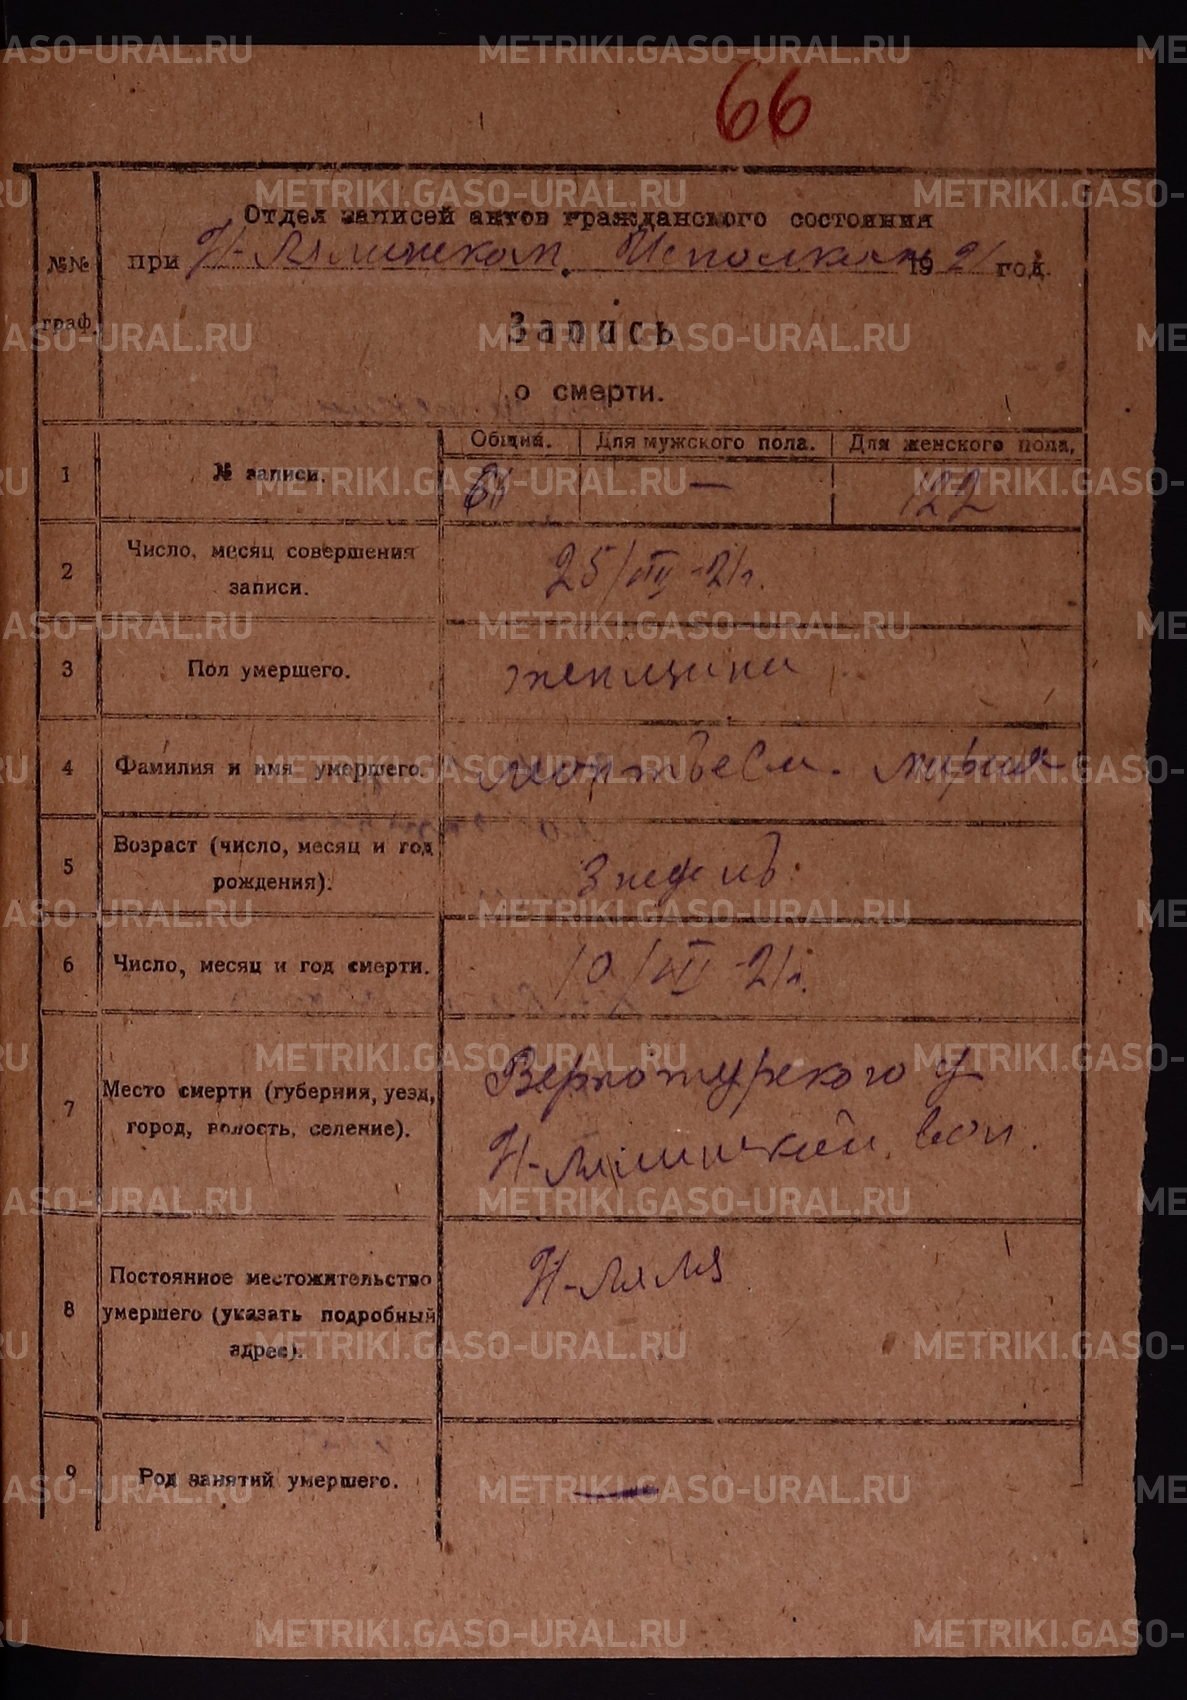 66
Отдел записей актов гражданского состояния
№№ граф.
при Н-Лялинском. Исполкоме 1921 год.
Запись
о смерти.
1 № записи. Общий. Для мужского пола. Для женского пола.
— 122
2 Число, месяц совершения записи. 25/ -21г.
3 Пол умершего. женщина
4 Фамилия и имя умершего. Мария
5 Возраст (число, месяц и год рождения). 3 недель.
6 Число, месяц и год смерти. 10/ -21г.
7 Место смерти (губерния, уезд, город, волость, селение). Верхотурского у
Н-Лялинской. вол.
8 Постоянное местожительство умершего (указать подробный адрес). Н-Ляля
9 Род занятий умершего. —
METRIKI.GASO-URAL.RU